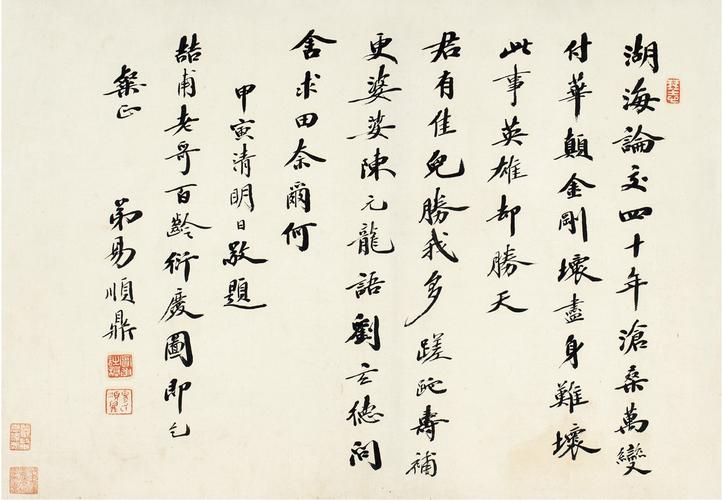 湖海論交四十年滄桑萬變
付華顛金剛壞盡身難壞
此事英雄却勝天
君有佳兒勝我多蹉跎壽補
更婆娑陳元龍語劉玄德問
舍求田奈爾何
甲寅清明日敬題
喆甫老哥百齡衍慶圖即乞
粲正
弟易順鼎